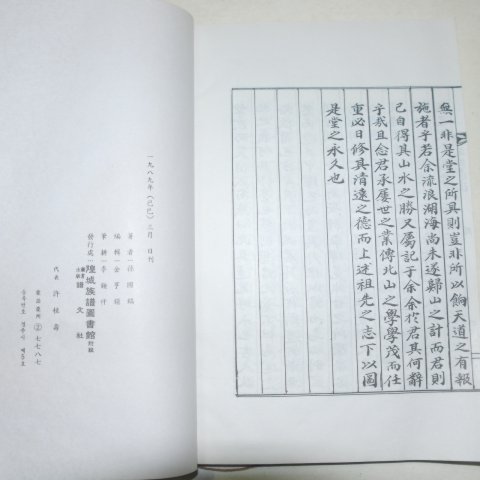 無一非是堂之所具則豈非所以餉天道之有報
施者乎若余流浪湖海尚未遂歸山之計而君則
已自得其山水之勝又屬記于余余於君其何辭
乎哉且念君承屢世之業傳北山之學學茂而任
重必日修其清遠之德而上述祖先之志下以圖
是堂之永久也
一九八九年(己巳)三月 日刊
著者…孫
編輯…金亨
筆耕…李
發行處…隍城族譜圖書館 附設
譜文社
代表 許
② 七七八七